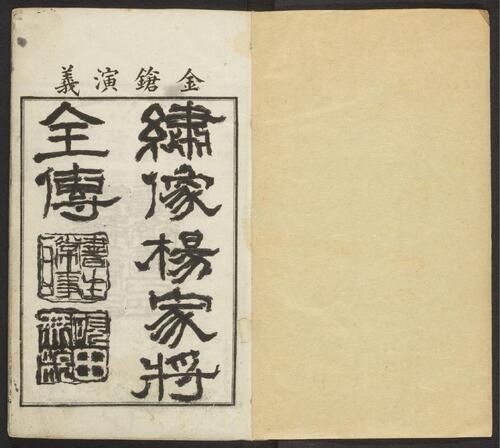 金鎗演義
繡像楊家將
全傳